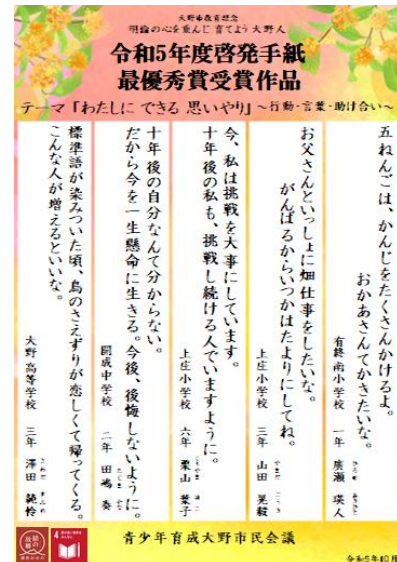 大野市教育理念
明倫の心を重んじ育てよう大野人
令和5年度啓発手紙
最優秀賞受賞作品
テーマ「わたしに できる 思いやり」~行動・言葉・助け合い~
五ねんごは、かんじをたくさんかけるよ。
おかあさんてかきたいな。
有終南小学校 一年 廣瀬 瑛人
お父さんといっしょに畑仕事をしたいな。
がんばるからいつかはたよりにしてね。
上庄小学校 三年 山田 晃毅
今、私は挑戦を大事にしています。
十年後の私も、挑戦し続ける人でいますように。
上庄小学校 六年 栗山 葉子
十年後の自分なんて分からない。
だから今を一生懸命に生きる。今後、後悔しないように。
開成中学校 二年 田嶋 奏
標準語が染みついた頃、鳥のさえずりが恋しくて帰ってくる。
こんな人が増えるといいな。
大野高等学校 三年 澤田 純怜
青少年育成大野市民会議
令和5年10月